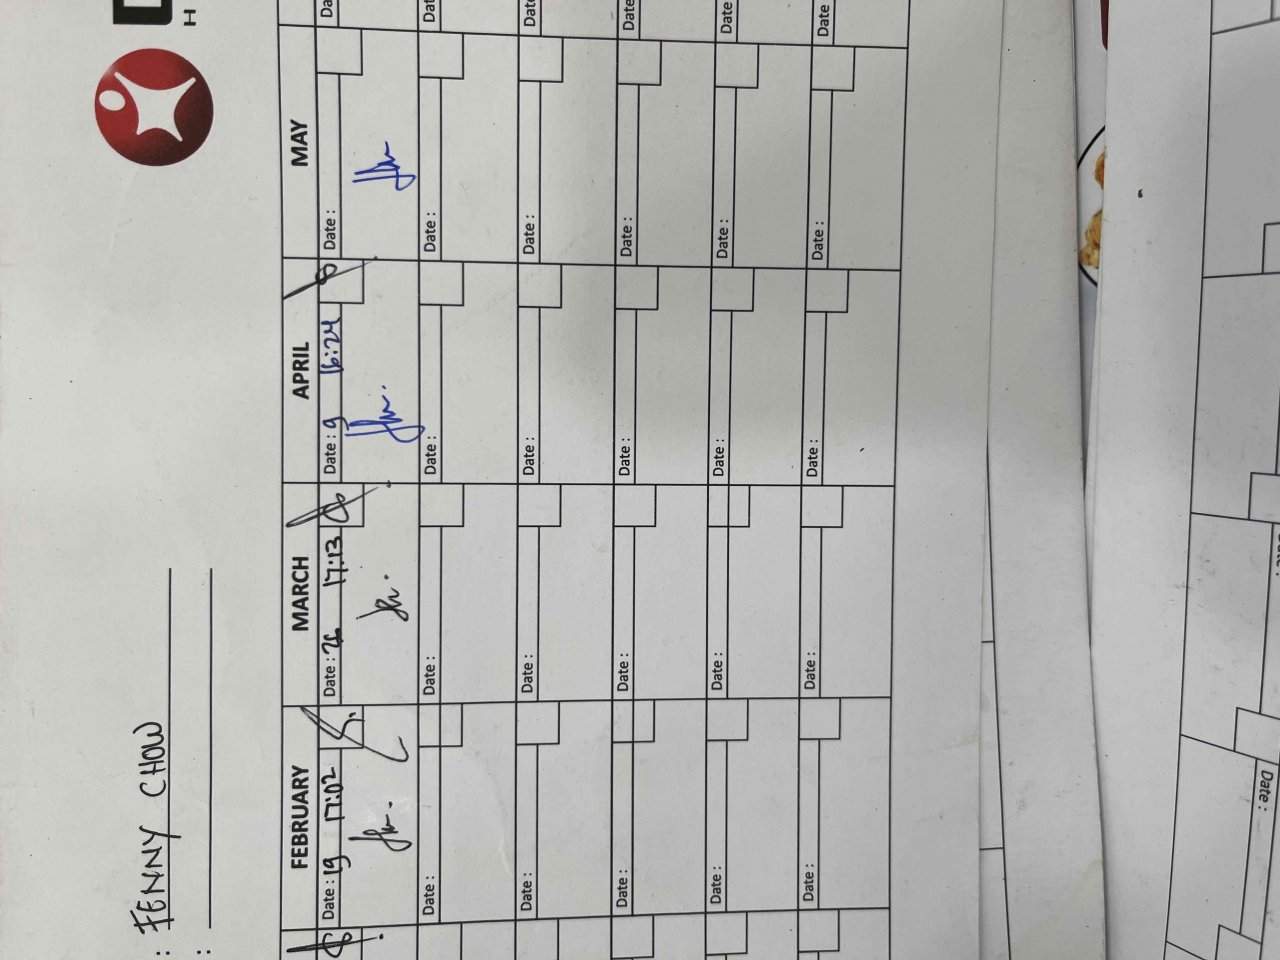 : FENNY CHOW
:
FEBRUARY MARCH APRIL MAY
Date : 19 17:02 Date : 26 17:13 Date : 9 16:24 Date :
Date : Date : Date : Date :
Date : Date : Date : Date :
Date : Date : Date : Date :
Date : Date : Date : Date :
Date : Date : Date : Date :
Date :